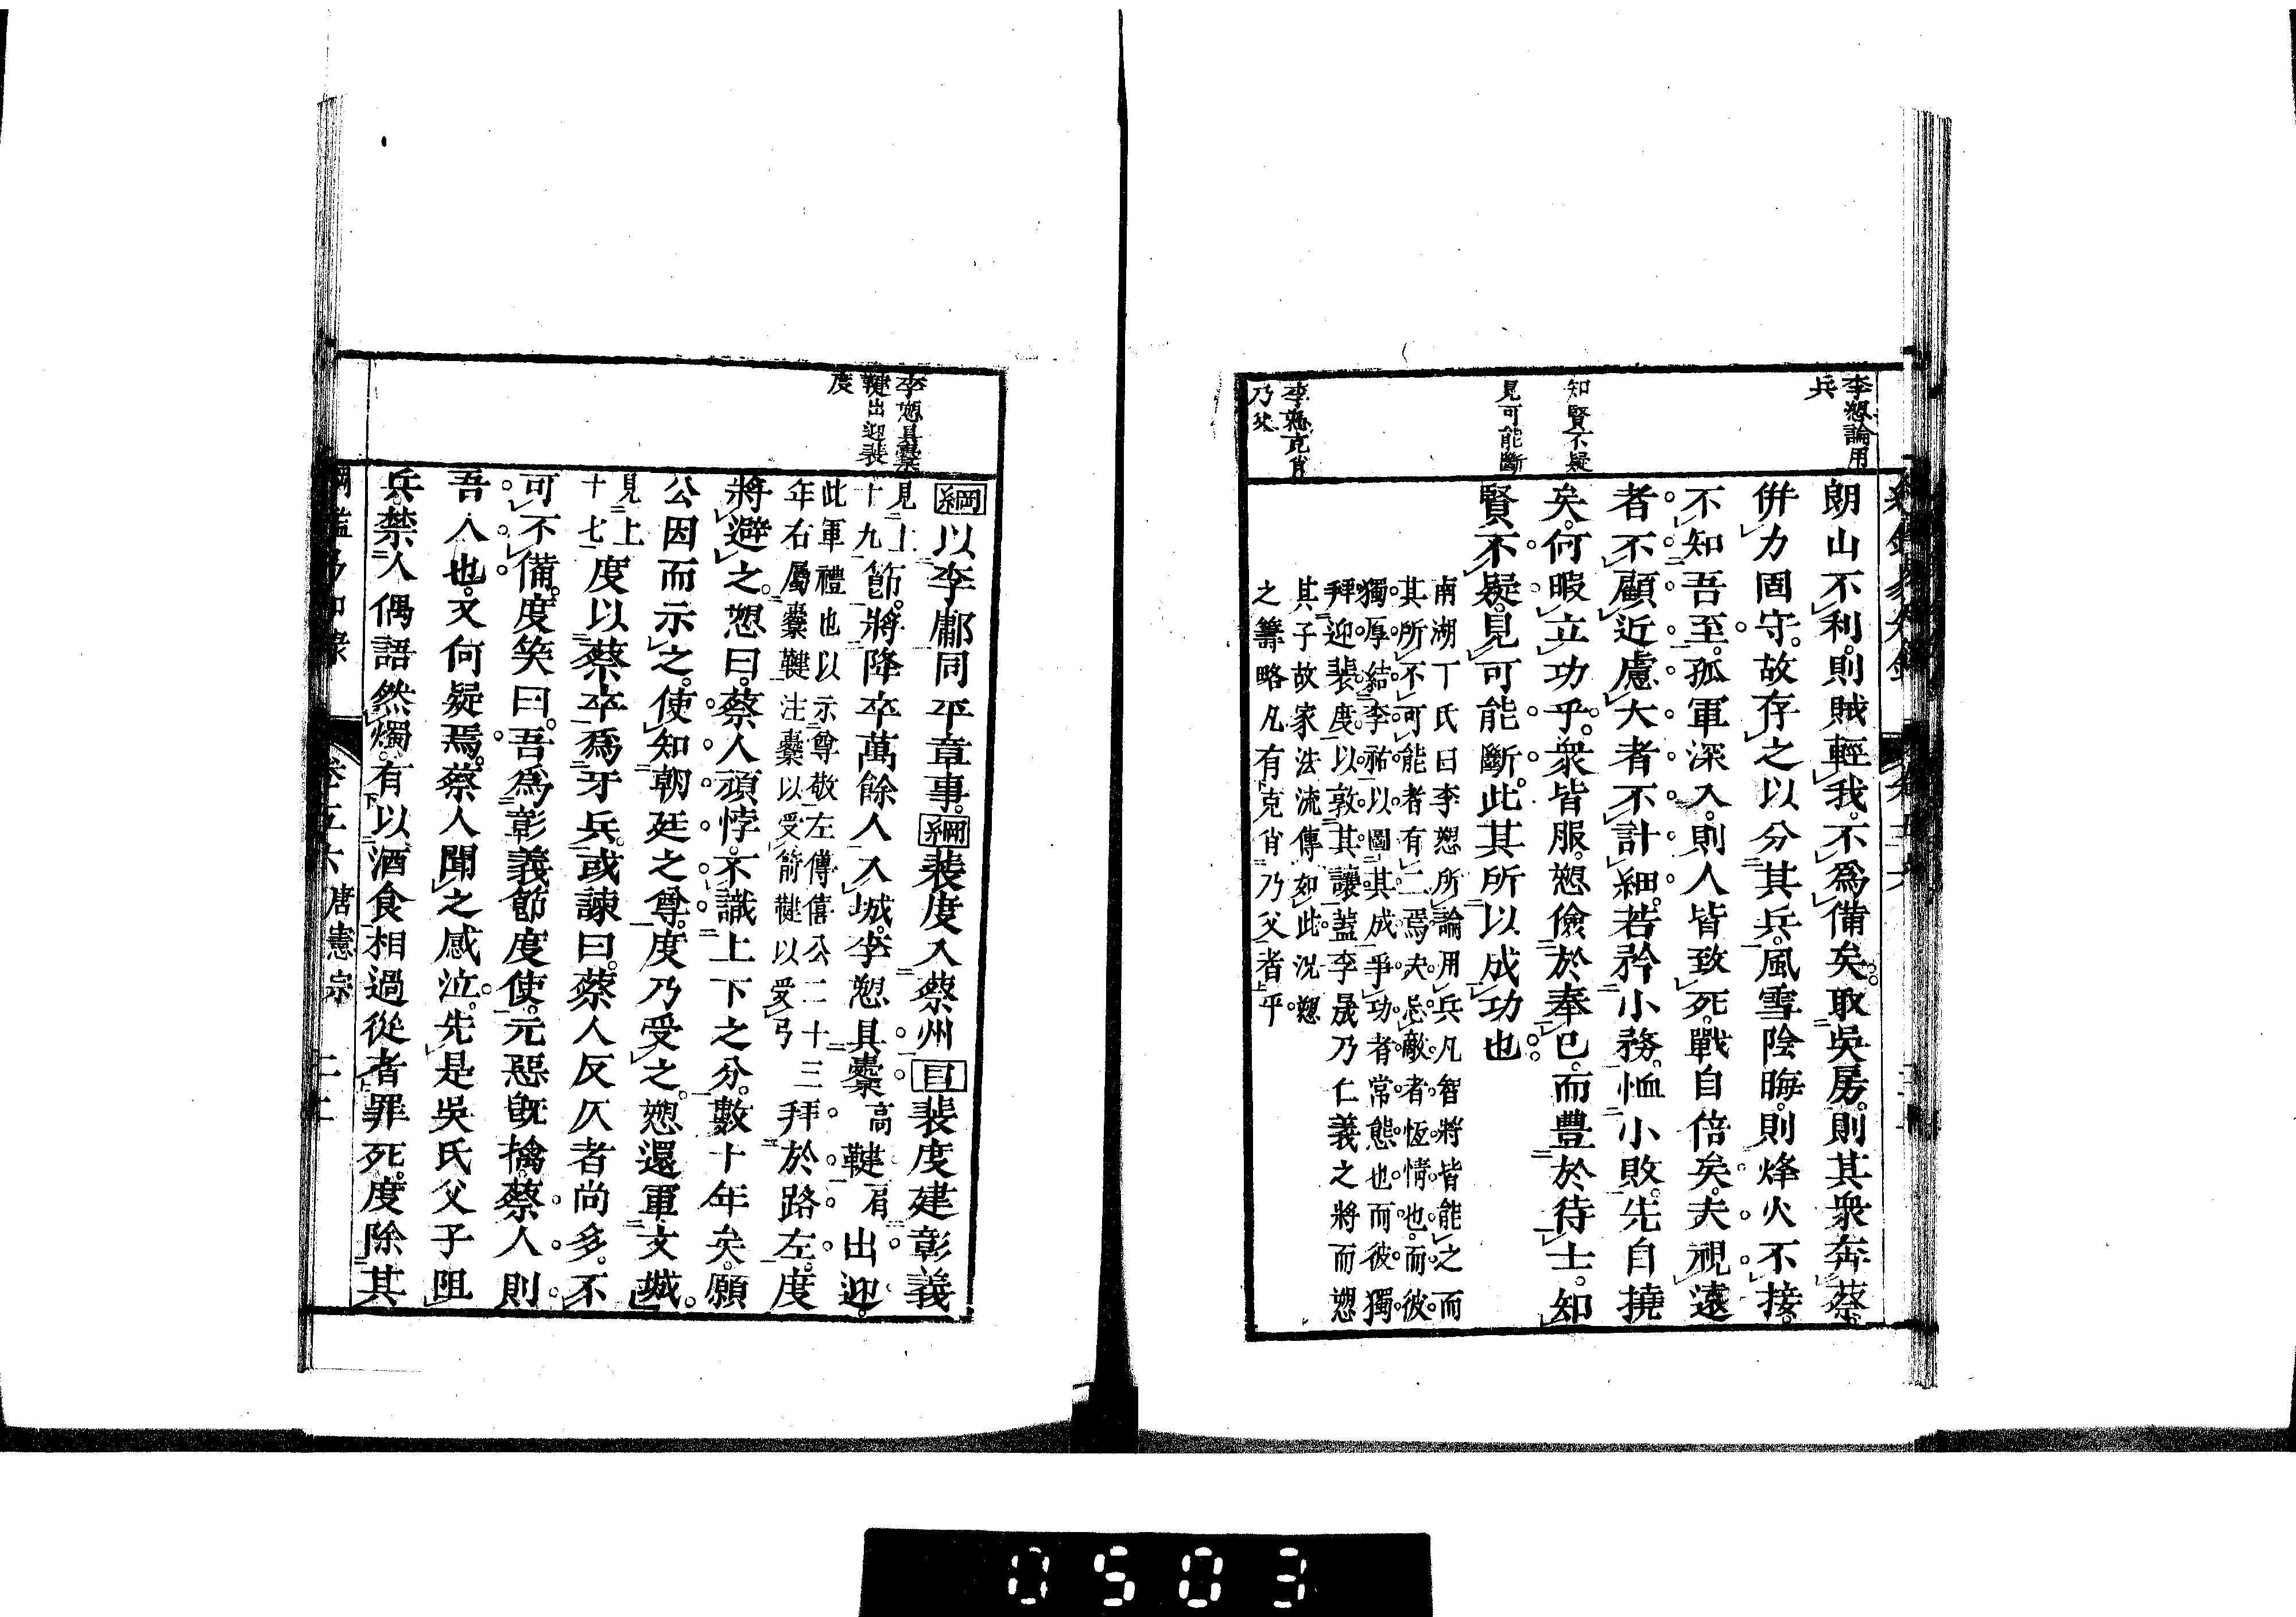 李愬論用
兵
知賢不疑
見可能斷
李愬克肖
乃父
朗山不利。則賊輕我。不爲備矣。取吳房。則其衆奔蔡。
併力固守。故存之以分其兵。風雪陰晦。則烽火不接。
不知吾至。孤軍深入。則人皆致死。戰自倍矣。夫視遠
者不顧近。慮大者不計細。若矜小務。恤小敗。先自撓
矣。何暇立功乎。衆皆服。愬儉於奉已。而豐於待士。知
賢不疑。見可能斷。此其所以成功也。
南湖丁氏曰李愬所論用兵凡智將皆能之而
其所不可能者有二焉夫忌敵者恆情也。而彼
獨厚結李祐以圖其成爭功者常態也而彼獨
拜迎裴度以敦其讓蓋李晟乃仁義之將而愬
其子故家法流傳如此。況愬
之籌略凡有克肖乃父者乎
李愬具櫜
鞬出迎裴
度
綱以李鄘同平章事。綱裴度入蔡州目裴度建彰義
見上
十九節。將降卒萬餘人入城。李愬具櫜高鞬肩出迎。
此軍禮也以示尊敬左傳僖公二十三
年右屬櫜鞬注櫜以受箭鞬以受弓拜於路左。度
將避之。愬曰。蔡人頑悖。不識上下之分。數十年矣。願
公因而示之。使知朝廷之尊。度乃受之。愬還軍文城。
見上
十七度以蔡卒爲牙兵。或諫曰。蔡人反仄者尚多。不
可不備。度笑曰。吾爲彰義節度使。元惡旣擒。蔡人則
吾人也。又何疑焉。蔡人聞之感泣。先是吳氏父子阻
兵。禁人偶語然燭。有以酒食相過從者罪死。度除其
卷五六 唐憲宗
0503